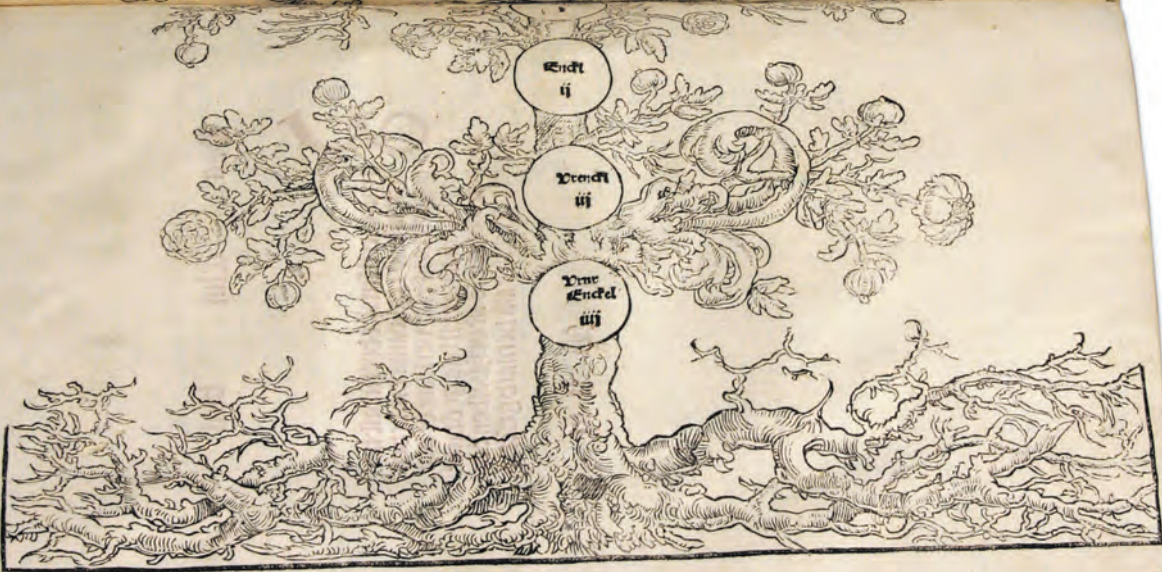 Enckl
ij
Vrenckl
iij
Vrur
Enckel
iiij